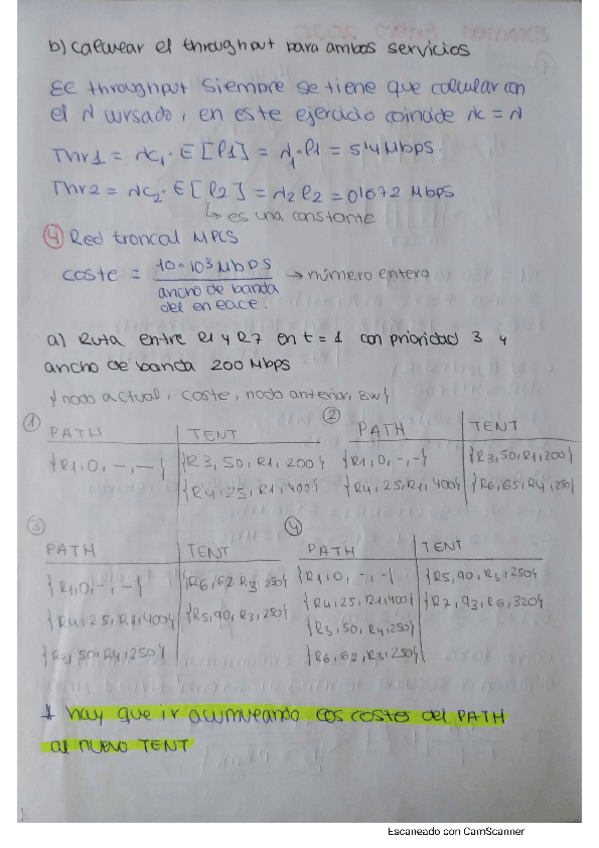 b) Calcular el throughput para ambos servicios
El throughput siempre se tiene que calcular con
el λ cursado, en este ejercicio coincide λc = λ
Thr1 = λc1 · E[l1] = λ1·l1 = 5'4 Mbps.
Thr2 = λc2 · E[l2] = λ2 l2 = 0'672 Mbps
↳ es una constante
④ Red troncal MPLS
coste = 10·10³ Mbps / ancho de banda del enlace. → número entero
a) Ruta entre R1 y R7 en t = 1 con prioridad 3 y
ancho de banda 200 Mbps
{nodo actual, coste, nodo anterior, BW}
① PATH | TENT
{R1,0,-,-} | {R3, 50, R1, 200}
{R4, 25, R1, 400}
② PATH | TENT
{R1,0,-,-} | {R3,50,R1,200}
{R4, 25, R1, 400} | {R6,65,R4,250}
③ PATH | TENT
{R1,0,-,-} | {R6,62,R3,250}
{R4,25,R1,400} | {R5,90,R3,250}
{R3, 50, R4, 250}
④ PATH | TENT
{R1,0,-,-} | {R5,90,R3,250}
{R4,25,R1,400} | {R7,93,R6,320}
{R3,50,R4,250}
{R6,62,R3,250}
* hay que ir acumulando los costes del PATH
al nuevo TENT
Escaneado con CamScanner